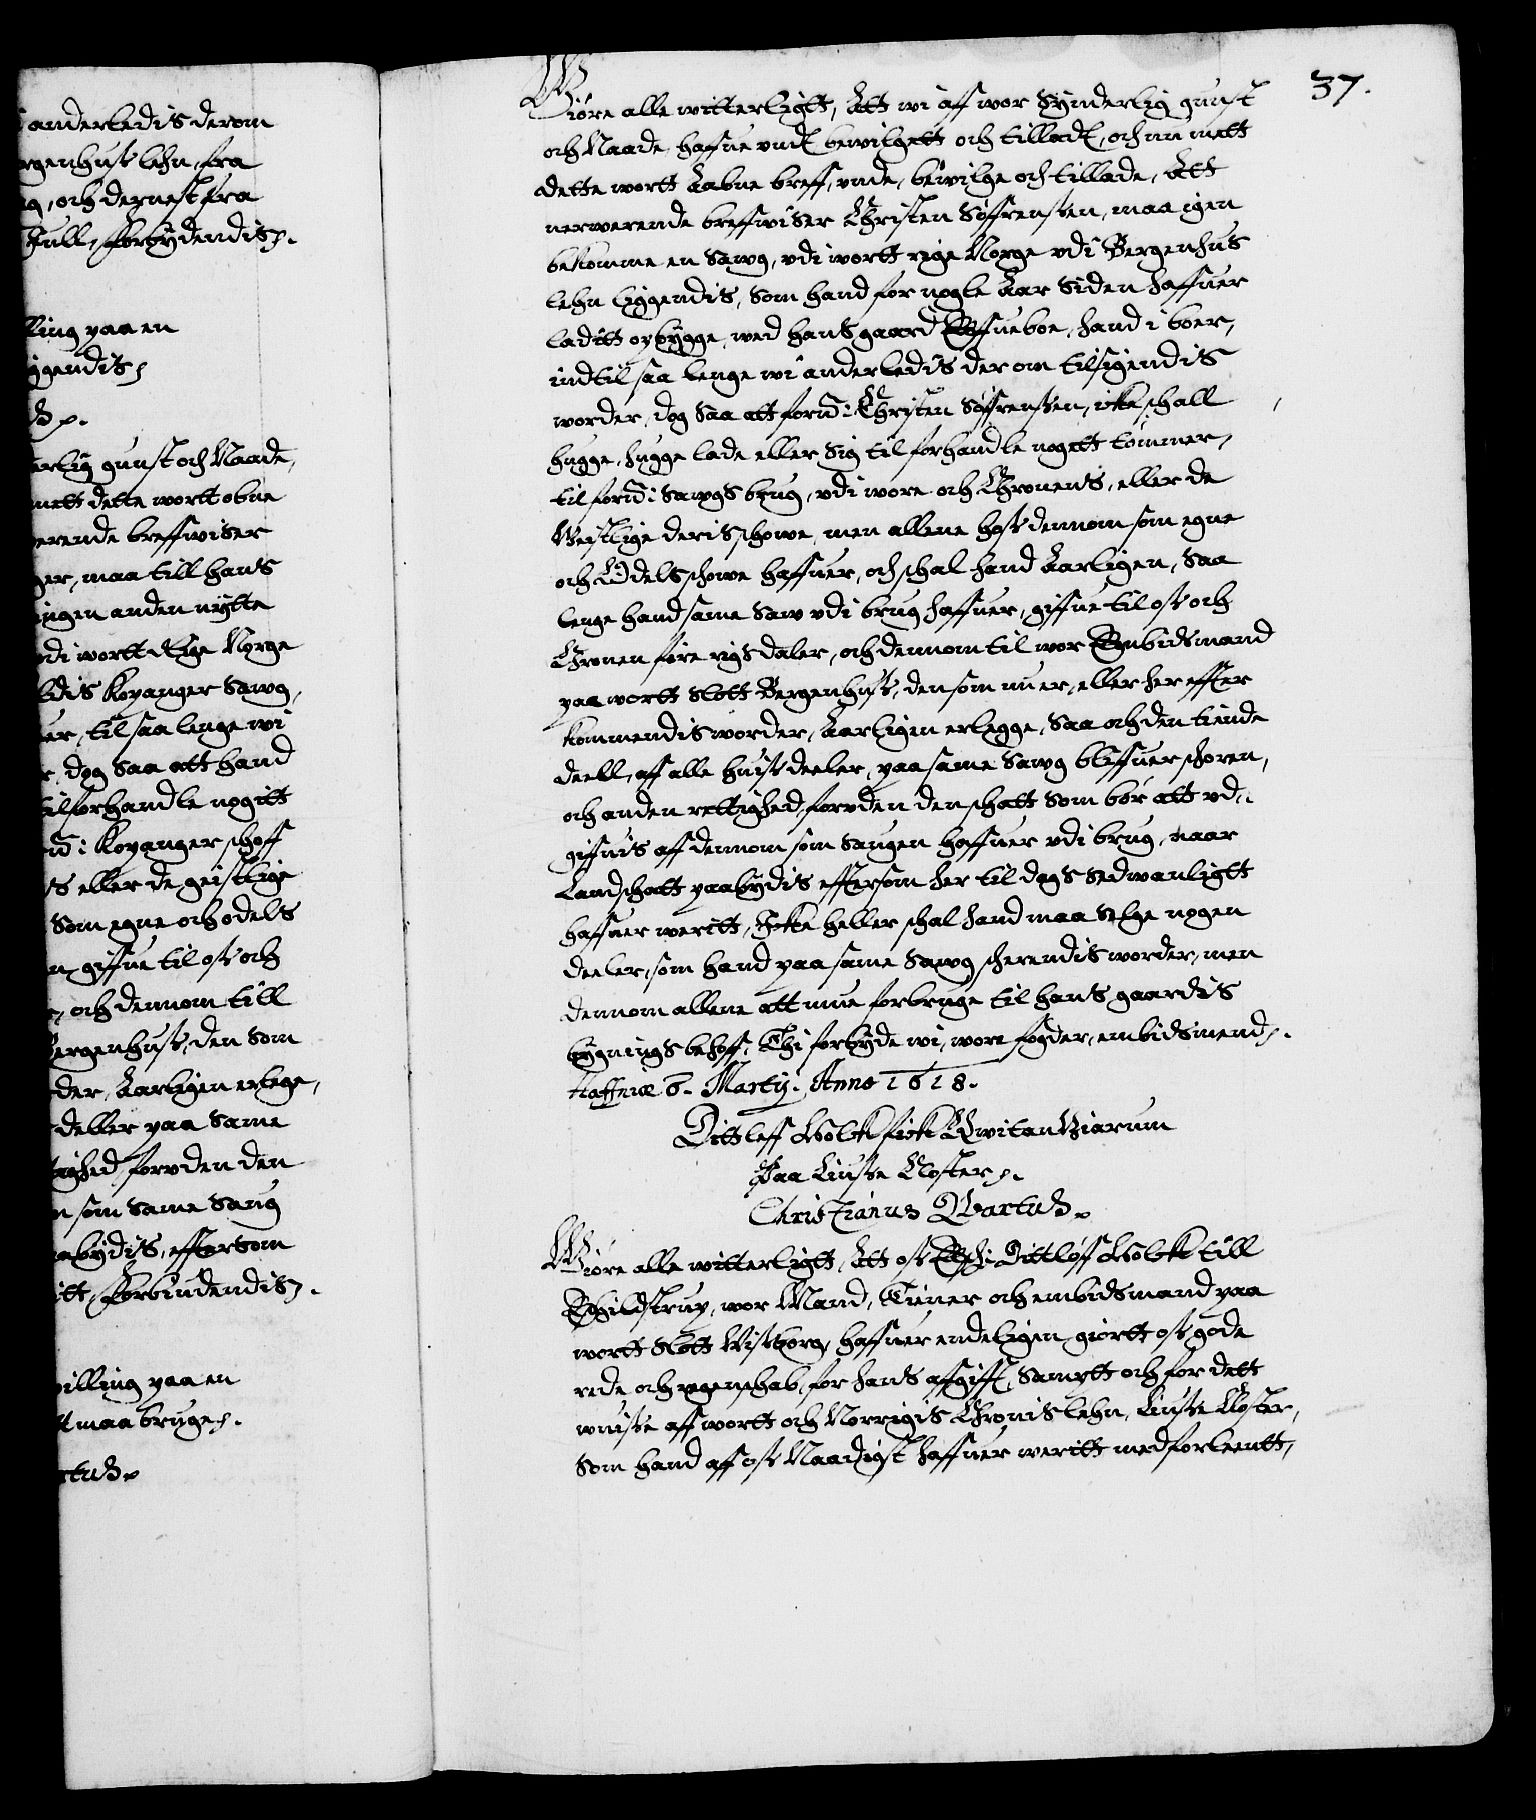 anderledis derom
rgenhus lehn, fra
g, och dernest fra
Full, Forbydendis.
lling paa en
gendis,
erlig gunst och Naade,
mett dette wortt obne
erende breffwiser
ger, maa till hans
ingen anden nytte
di wortt Rige Norge
dis Kopanger Sawg,
er, til saa lenge wi
r, dog saa att hand
tilforhandle nogitt
Kopanger schoff
s eller de geistlige
som egne och odels
n giffue til oss och
, och dennom till
Bergenhus, den som
der, Aarligen erlege,
deller paa same
ighed foruden den
n som same Saug
abydis, effter som
itt, Forbiudendis.
illing paa en
t maa bruge.
37.
Giøre alle witterligt, Att wi aff wor synderlig gunst
och Naade, haffue undt bewilgett och tilladt, och nu mett
dette wortt Aabne breff, unde, bewilge och tillade, Att
nerwerende breffwiser Christen Søffrensen, maa igen
bekomme en Sawg, udi wortt rige Norge udi Bergenhus
lehn liggendis, som hand for nogle Aar siden haffuer
laditt opbygge, wed hans gaard hand i boer,
indtil saa lenge wi anderledis der om tilsigendis
worder, dog saa att forn: Christen Søffrensen, icke schall
hugge, hugge lade eller sig til forhandle nogitt tømmer,
til forn: Sawgs brug, udi wore och Chronens, eller de
Geistlige deris schowe, men allene hos dennom som egne
och Odels schowe haffuer, och schal hand Aarligen, saa
lenge hand same Saw udi brug haffuer, giffue til oss och
Chronen fire rigs daler, och dennom til wor Embidsmand
paa wortt Slott Bergenhus, den som nu er, eller her effter
kommendis worder, Aarligen erlegge, Saa och den tiende
deell, aff alle huis deeler, paa same Sawg bliffuer schoren,
och anden rettighed, foruden den schatt som bør att ud,
giffuis aff dennom som Saugen haffuer udi brug, naar
Landschatt paabydis effter som her til dags sedwanligt
haffuer weritt, Icke heller schal hand maa selge nogen
deeler, som hand paa same Sawg scherendis worder, men
dennom allene att mue forbruge til hans gaardis
bygnings behoff, Thi forbyde wi, wore fogder, embidsmend.
Haffniæ 6. Martij. Anno 1618.
Dittleff Holck fick Qwitantziarum
Paa Liuse Closter.
Christianus Quartus.
Giøre alle witterligt, Att oss Dittløff Holck till
wor Mand, Tiener och embidsmand paa
wortt Slott Wisborg, haffuer endeligen giortt oss gode
rede och regenschab, for hans affgifft, sampt och for dett
wuisse aff wortt och Norrigis Chronis lehn, Liuse Closter,
som hand aff oss Naadigst haffuer weritt med forleentt,